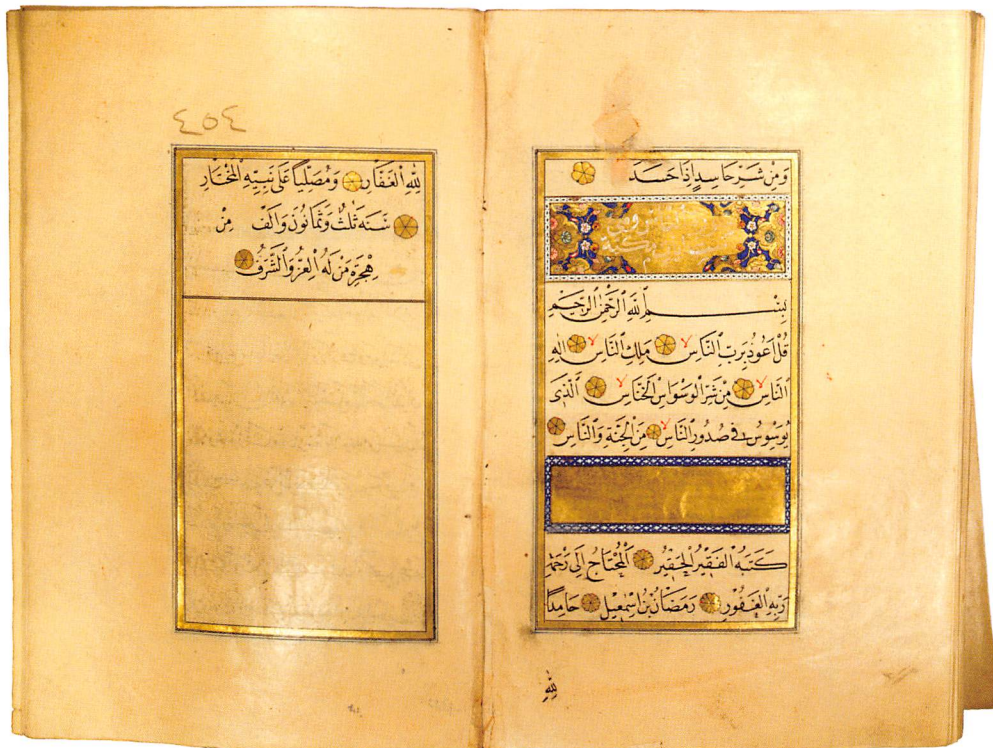 وَمِنْ شَرِّ حَاسِدٍ اِذَا حَسَدَ
بِسْمِ اللّٰهِ الرَّحْمٰنِ الرَّحٖيمِ
قُلْ اَعُوذُ بِرَبِّ النَّاسِ لا مَلِكِ النَّاسِ لا اِلٰهِ
النَّاسِ لا مِنْ شَرِّ الْوَسْوَاسِ الْخَنَّاسِ لا اَلَّذٖى
يُوَسْوِسُ فٖى صُدُورِ النَّاسِ لا مِنَ الْجِنَّةِ وَالنَّاسِ
كَتَبَهُ الْفَقٖيرُ الْحَقٖيرُ اَلْمُحْتَاجُ اِلٰى رَحْمَةِ
رَبِّهِ الْغَفُورِ رَمَضَانُ بْنُ اِسْمٰعٖيلَ حَامِدًا
لِلّٰهِ
٤٥٤
لِلّٰهِ الْغَفَّارِ وَمُصَلِّيًا عَلٰى نَبِيِّهِ الْمُخْتَارِ
سَنَه ثَلٰثٌ وَثَمَانُونَ وَاَلْفٌ مِنْ
هِجْرَةِ مَنْ لَهُ الْعِزُّ وَالشَّرَفُ